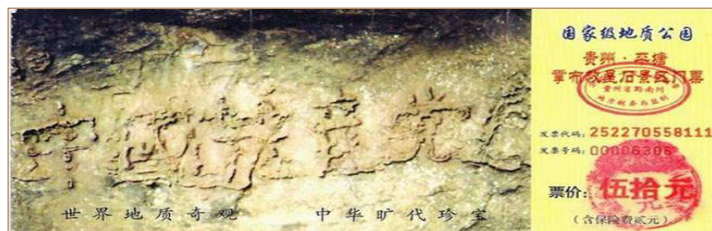 中国共产党
世界地质奇观 中华旷代珍宝
国家级地质公园
贵州·平塘
掌布藏字石景区门票
发票代码:252270558111
发票号码:00006306
票价:伍拾元
(含保险费贰元)